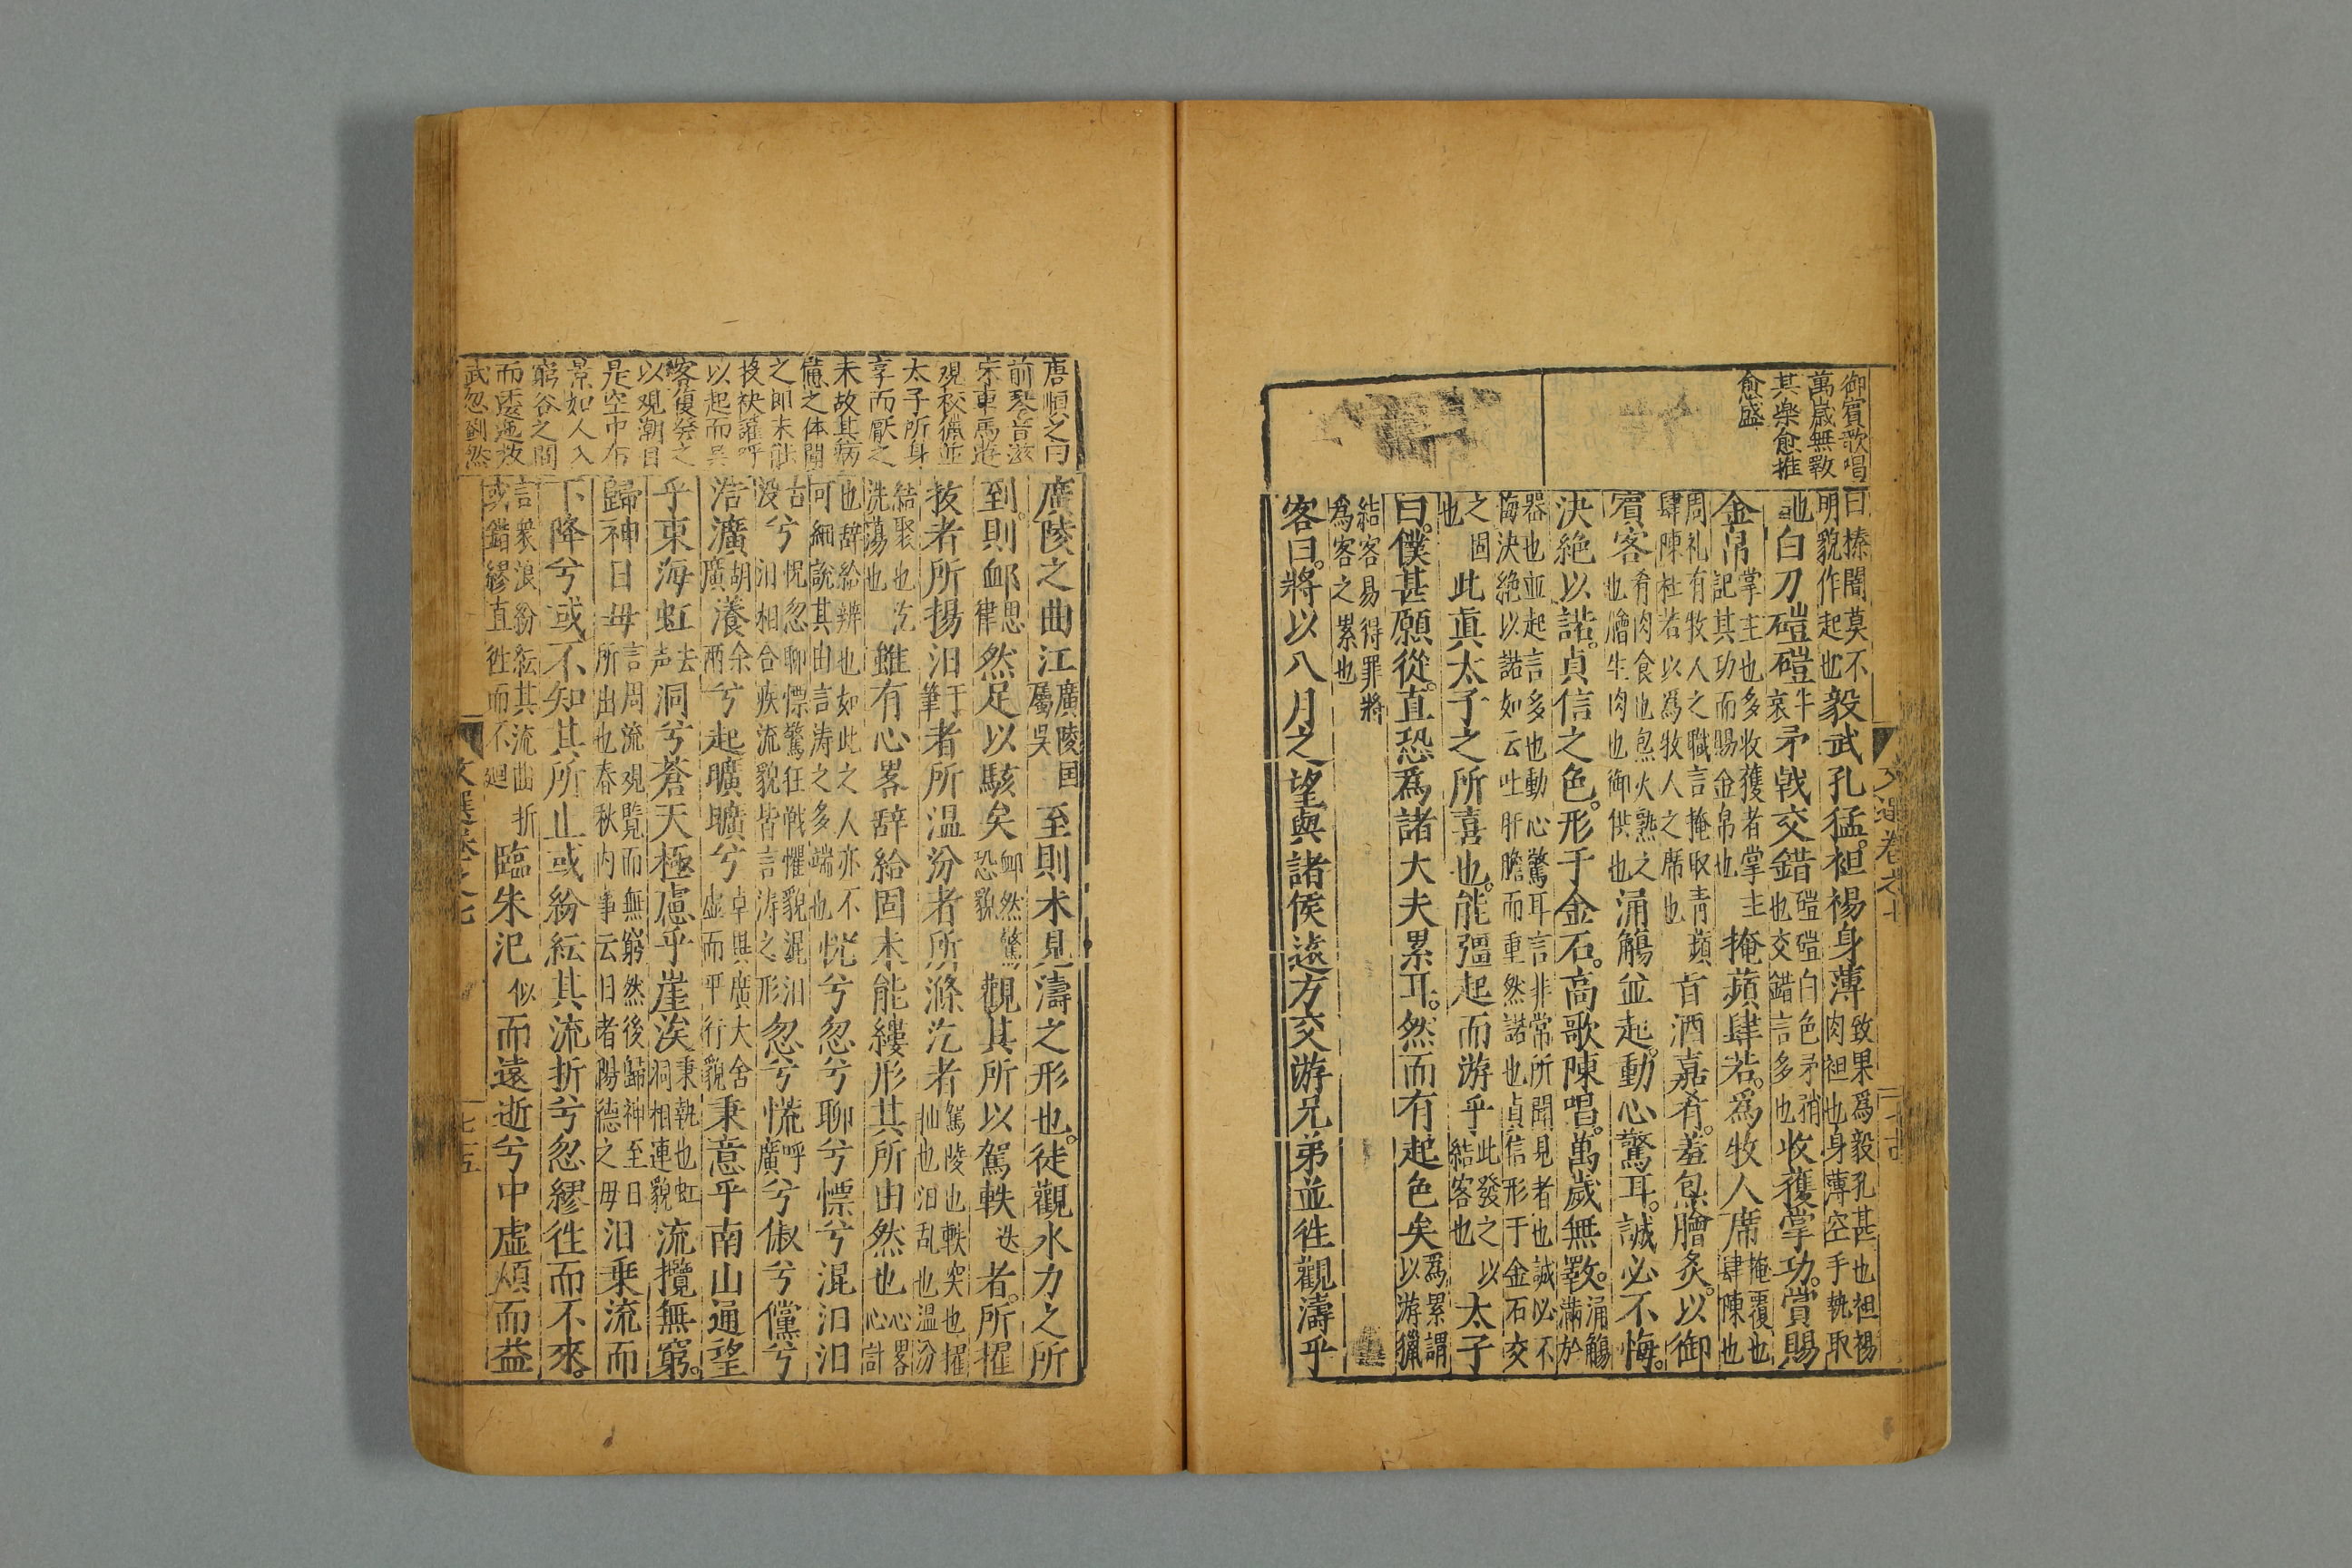 御賓歌唱
萬歲無斁
其樂愈推
愈盛
曰榛闇莫不
明貌作起也
毅武孔猛。袒裼身薄
致果爲毅孔甚也袒裼
肉袒也身薄空手執取
也
白刀磑磑
牛
哀
矛戟交錯
磑磑白色矛矟
也交錯言多也
收獲掌功。賞賜
金帛
掌主也多收獲者掌主
記其功而賜金帛也
掩蘋肆若。爲牧人席
掩覆也
肆陳也
周礼有牧人之職言掩取青蘋
肆陳杜若以爲牧人之席也
旨酒嘉肴。羞炰膾炙。以御
賓客
肴肉食也炰火熟之
也膾生肉也御供也
涌觴並起。動心驚耳。誠必不悔。
決絶以諾。貞信之色。形于金石。高歌陳唱。萬歲無斁。
涌觴
滿於
器也並起言多也動心驚耳言非常所聞見者也誠必不
悔決絶以諾如云吐肝膽而重然諾也貞信形于金石交
之固
也
此真太子之所喜也。能彊起而游乎
此發之以
結客也
太子
曰。僕甚願從。直恐爲諸大夫累耳。然而有起色矣
爲累謂
以游獵
結客易得罪將
爲客之累也
客曰。將以八月之望與諸侯遠方交游兄弟並徃觀濤乎
唐順之曰
前琴音滋
味車馬遊
觀校獵並
太子所身
享而厭之
未故其病
備之体聞
之即未能
投袂讙呼
以起而吳
客復癸之
以觀潮自
是空中布
景如人入
窮谷之間
而逶迤放
武忽劃然
廣陵之曲江
廣陵囯
屬吳
至則未見濤之形也。徒觀水力之所
到。則䘏
思
律
然足以駭矣
䘏然驚
恐貌
觀其所以駕軼
迭
者。所擢
㧞者所揚汩
于
筆
者所温汾者所滌汔者
駕陵也軼突也擢
抽也汩乱也温汾
結聚也汔
洗蕩也
雖有心畧辞給固未能縷形其所由然也
心畧
心計
也辞給辨也如此之人亦不
可細說其由言涛之多端也
怳兮忽兮聊兮慄兮混汩汩
古
没
兮
怳忽聊慄驚狂戦懼貌混汩
汩相合疾流貌皆言涛之形
忽兮慌
呼
廣
兮俶兮儻兮
浩瀇
胡
廣
瀁
余
兩
兮起曠曠兮
卓異廣大含
虚而平行貌
秉意乎南山通望
乎東海虹
去
声
洞兮蒼天極慮乎崖涘
秉執也虹
洞相連貌
流攬無窮。
歸神日母
言周流观覽而無窮然後歸神至日
所出也春秋内事云日者陽德之母
汩乗流而
下降兮或不知其所止或紛紜其流折兮忽繆徃而不來。
言衆浪紛紜其流曲折
或錯繆直徃而不廻
臨朱汜
似
而遠逝兮中虚煩而益